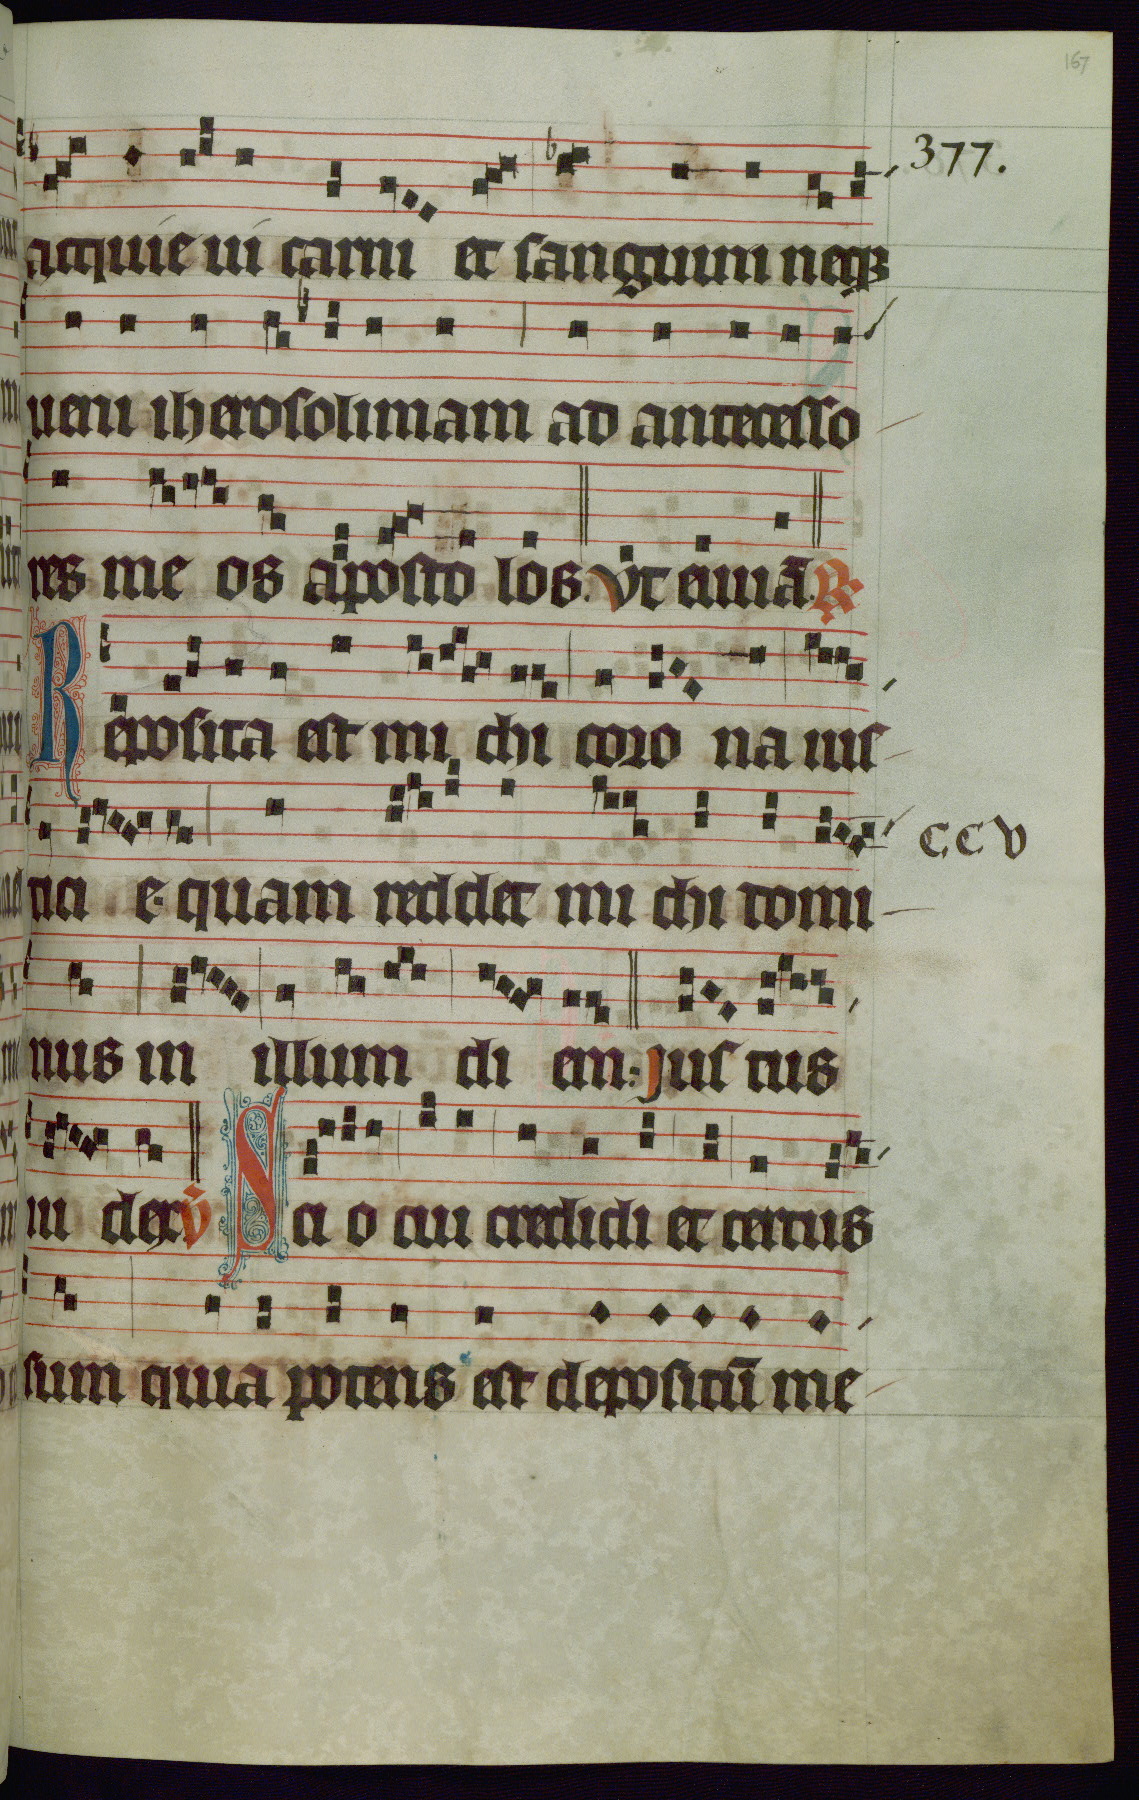 167
377.
acquie ui carni et sanguini neqꝫ
ueni iherosolimam ad antecesso
res me os aposto los. Vt euuiā. R
Reposita est mi chi coro na ius
CCV
tici e. quam reddet mi chi domi
nus in illum di em: Jus tus
iu dex. V Sci o cui credidi et certus
sum quia potens est depositū me